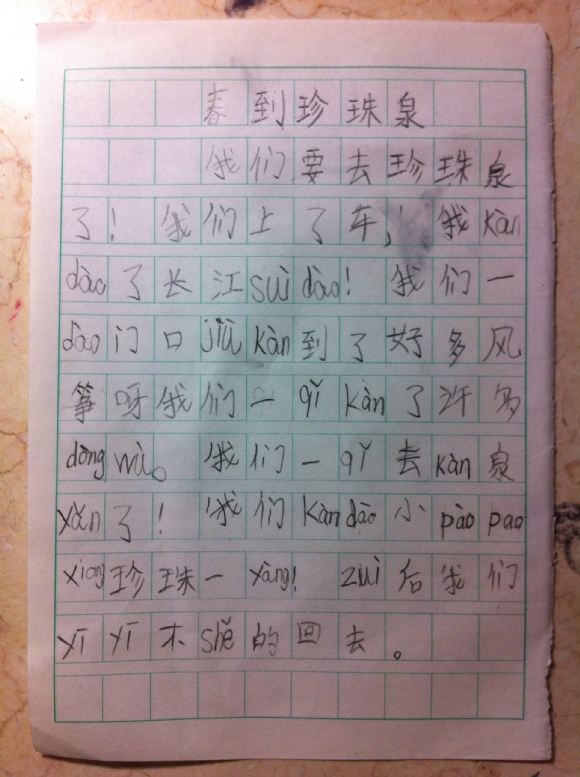 春到珍珠泉
我们要去珍珠泉
了！我们上了车，我kàn
dào了长江suì dào！我们一
dào门口jiù kàn到了好多风
筝呀我们一qǐ kàn了许多
dòng wù。我们一qǐ去kàn泉
yǎn了！我们kàn dào小pào pao
xiang珍珠一yàng！zuì后我们
yī yī不shě的回去。